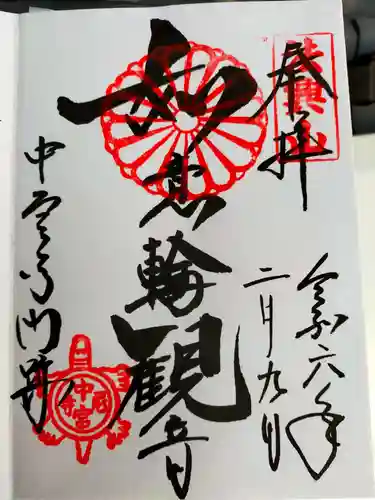 奉拝
令和六年
二月九日
如意輪観音
中宮寺門跡
中宮寺印